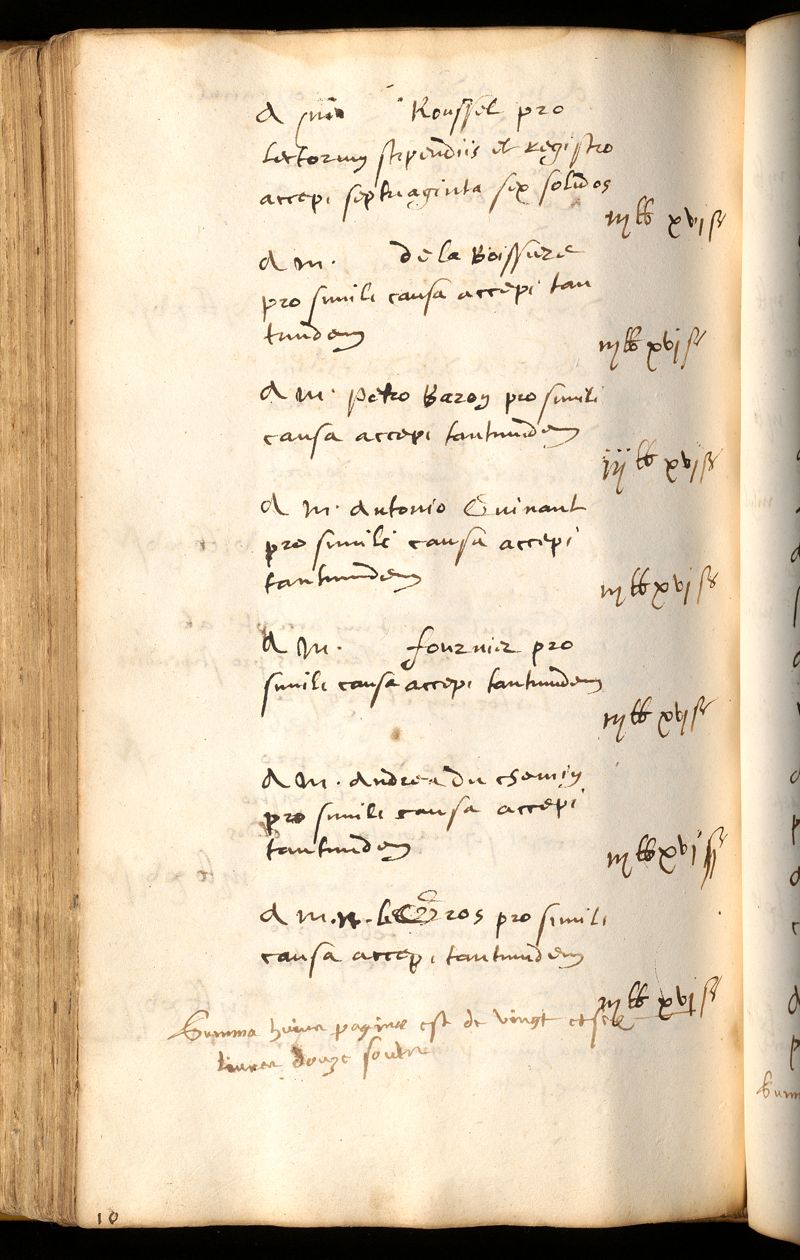 A Roussel pro
lectorum stipendiis et registro
accepi septuaginta sex solidos
iij ℔ xvj ſ
A M. de la Boissiere
pro simili causa accepi tan
tundem
iij ℔ xvj ſ
A M. Petro Baron pro simili
causa accepi tantundem
iij ℔ xvj ſ
A M. Antonio Guinant
pro simili causa accepi
tantundem
iij ℔ xvj ſ
A M. fournier pro
simili causa accepi tantundem
iij ℔ xvj ſ
A M. Andrea du chemin
pro simili causa accepi
tantundem
iij ℔ xvj ſ
A M. N. le Gros pro simili
causa accepi tantundem
iij ℔ xvj ſ
Summa huius paginae est de vingt et six
livres douze soulz
10
Summ